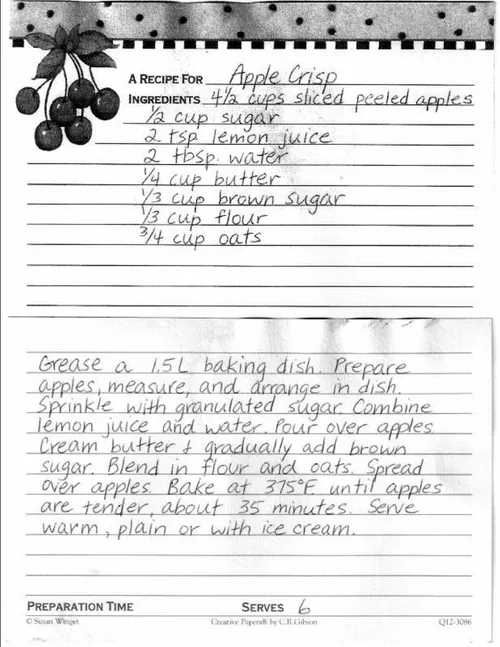 A RECIPE FOR Apple Crisp
INGREDIENTS 4½ cups sliced peeled apples
½ cup sugar
2 tsp lemon juice
2 tbsp. water
¼ cup butter
⅓ cup brown sugar
⅓ cup flour
¾ cup oats
Grease a 1.5L baking dish. Prepare
apples, measure, and arrange in dish.
Sprinkle with granulated sugar. Combine
lemon juice and water. Pour over apples.
Cream butter & gradually add brown
sugar. Blend in flour and oats. Spread
over apples. Bake at 375°F. until apples
are tender, about 35 minutes. Serve
warm, plain or with ice cream.
PREPARATION TIME SERVES 6
© Susan Winget Creative Papers® by C.R.Gibson Q12-3086